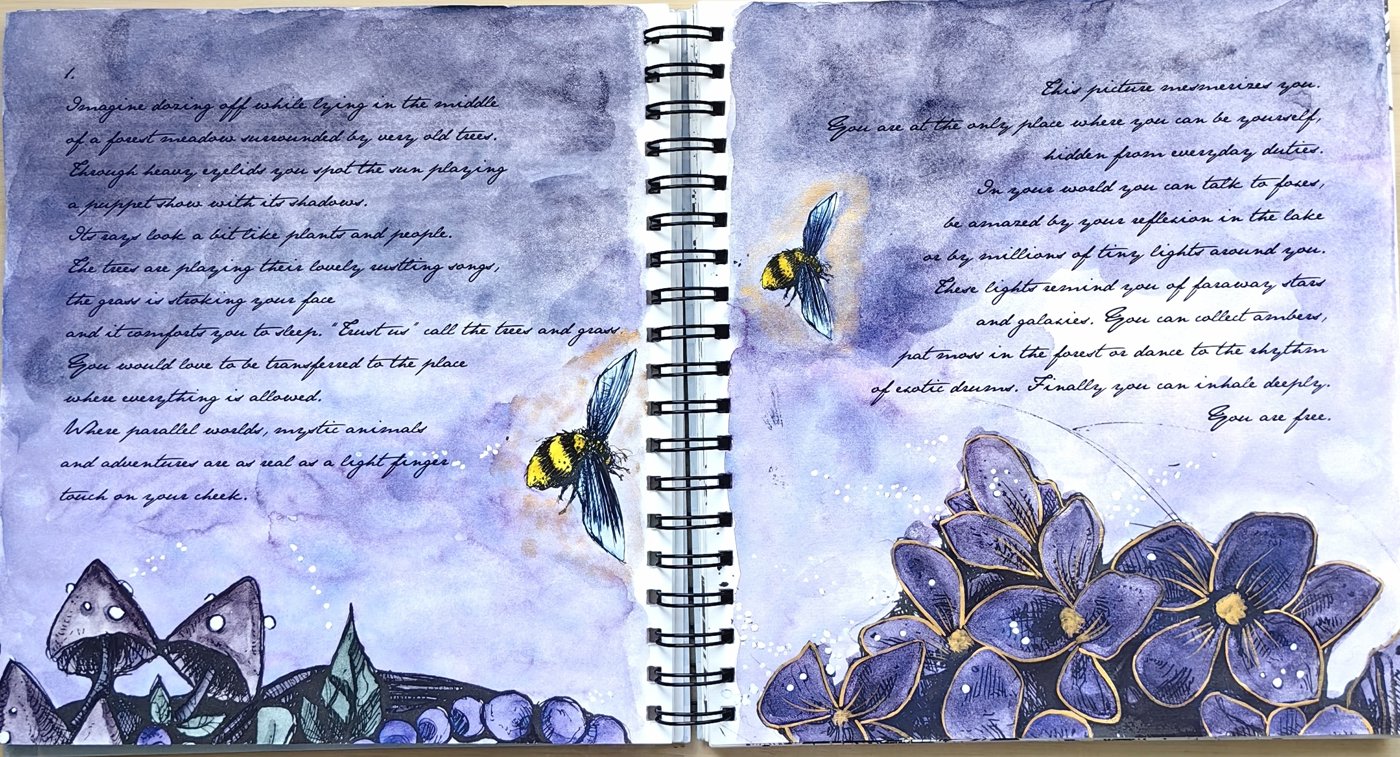 1.
Imagine dozing off while lying in the middle
of a forest meadow surrounded by very old trees.
Through heavy eyelids you spot the sun playing
a puppet show with its shadows.
Its rays look a bit like plants and people.
The trees are playing their lovely rustling songs,
the grass is stroking your face
and it comforts you to sleep. "Trust us" call the trees and grass.
You would love to be transferred to the place
where everything is allowed.
Where parallel worlds, mystic animals
and adventures are as real as a light finger
touch on your cheek.
This picture mesmerizes you.
You are at the only place where you can be yourself,
hidden from everyday duties.
In your world you can talk to foxes,
be amazed by your reflexion in the lake
or by millions of tiny lights around you.
These lights remind you of faraway stars
and galaxies. You can collect ambers,
pat moss in the forest or dance to the rhythm
of exotic drums. Finally you can inhale deeply.
You are free.